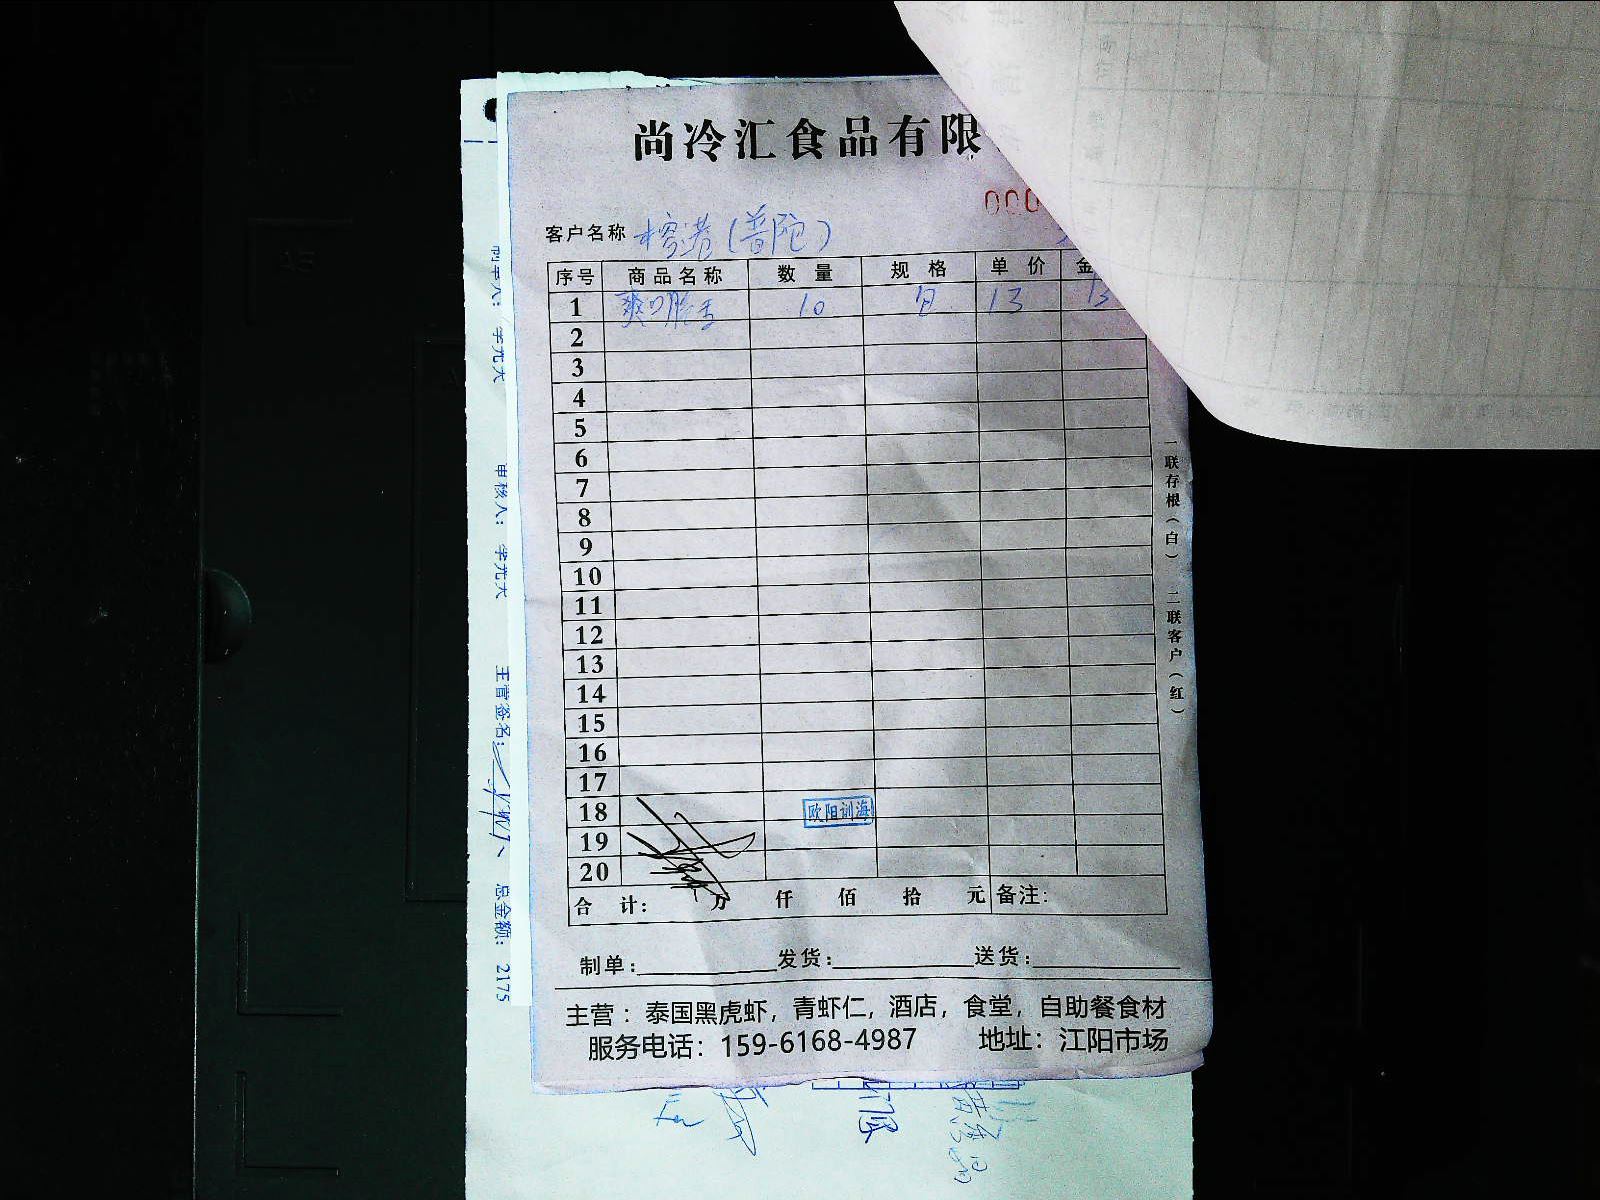 尚冷汇食品有限
000
客户名称 榕港(普陀)
序号 商品名称 数量 规格 单价 金
1 爽口肠王 10 包 13 13
2
3
4
5
6
7
8
9
10
11
12
13
14
15
16
17
18 欧阳训海
19
20
合计： 万 仟 佰 拾 元 备注：
制单： 发货： 送货：
主营：泰国黑虎虾，青虾仁，酒店，食堂，自助餐食材
服务电话：159-6168-4987 地址：江阳市场
一联存根（白） 二联客户（红）
审核人：
主管签名：
总金额：2175